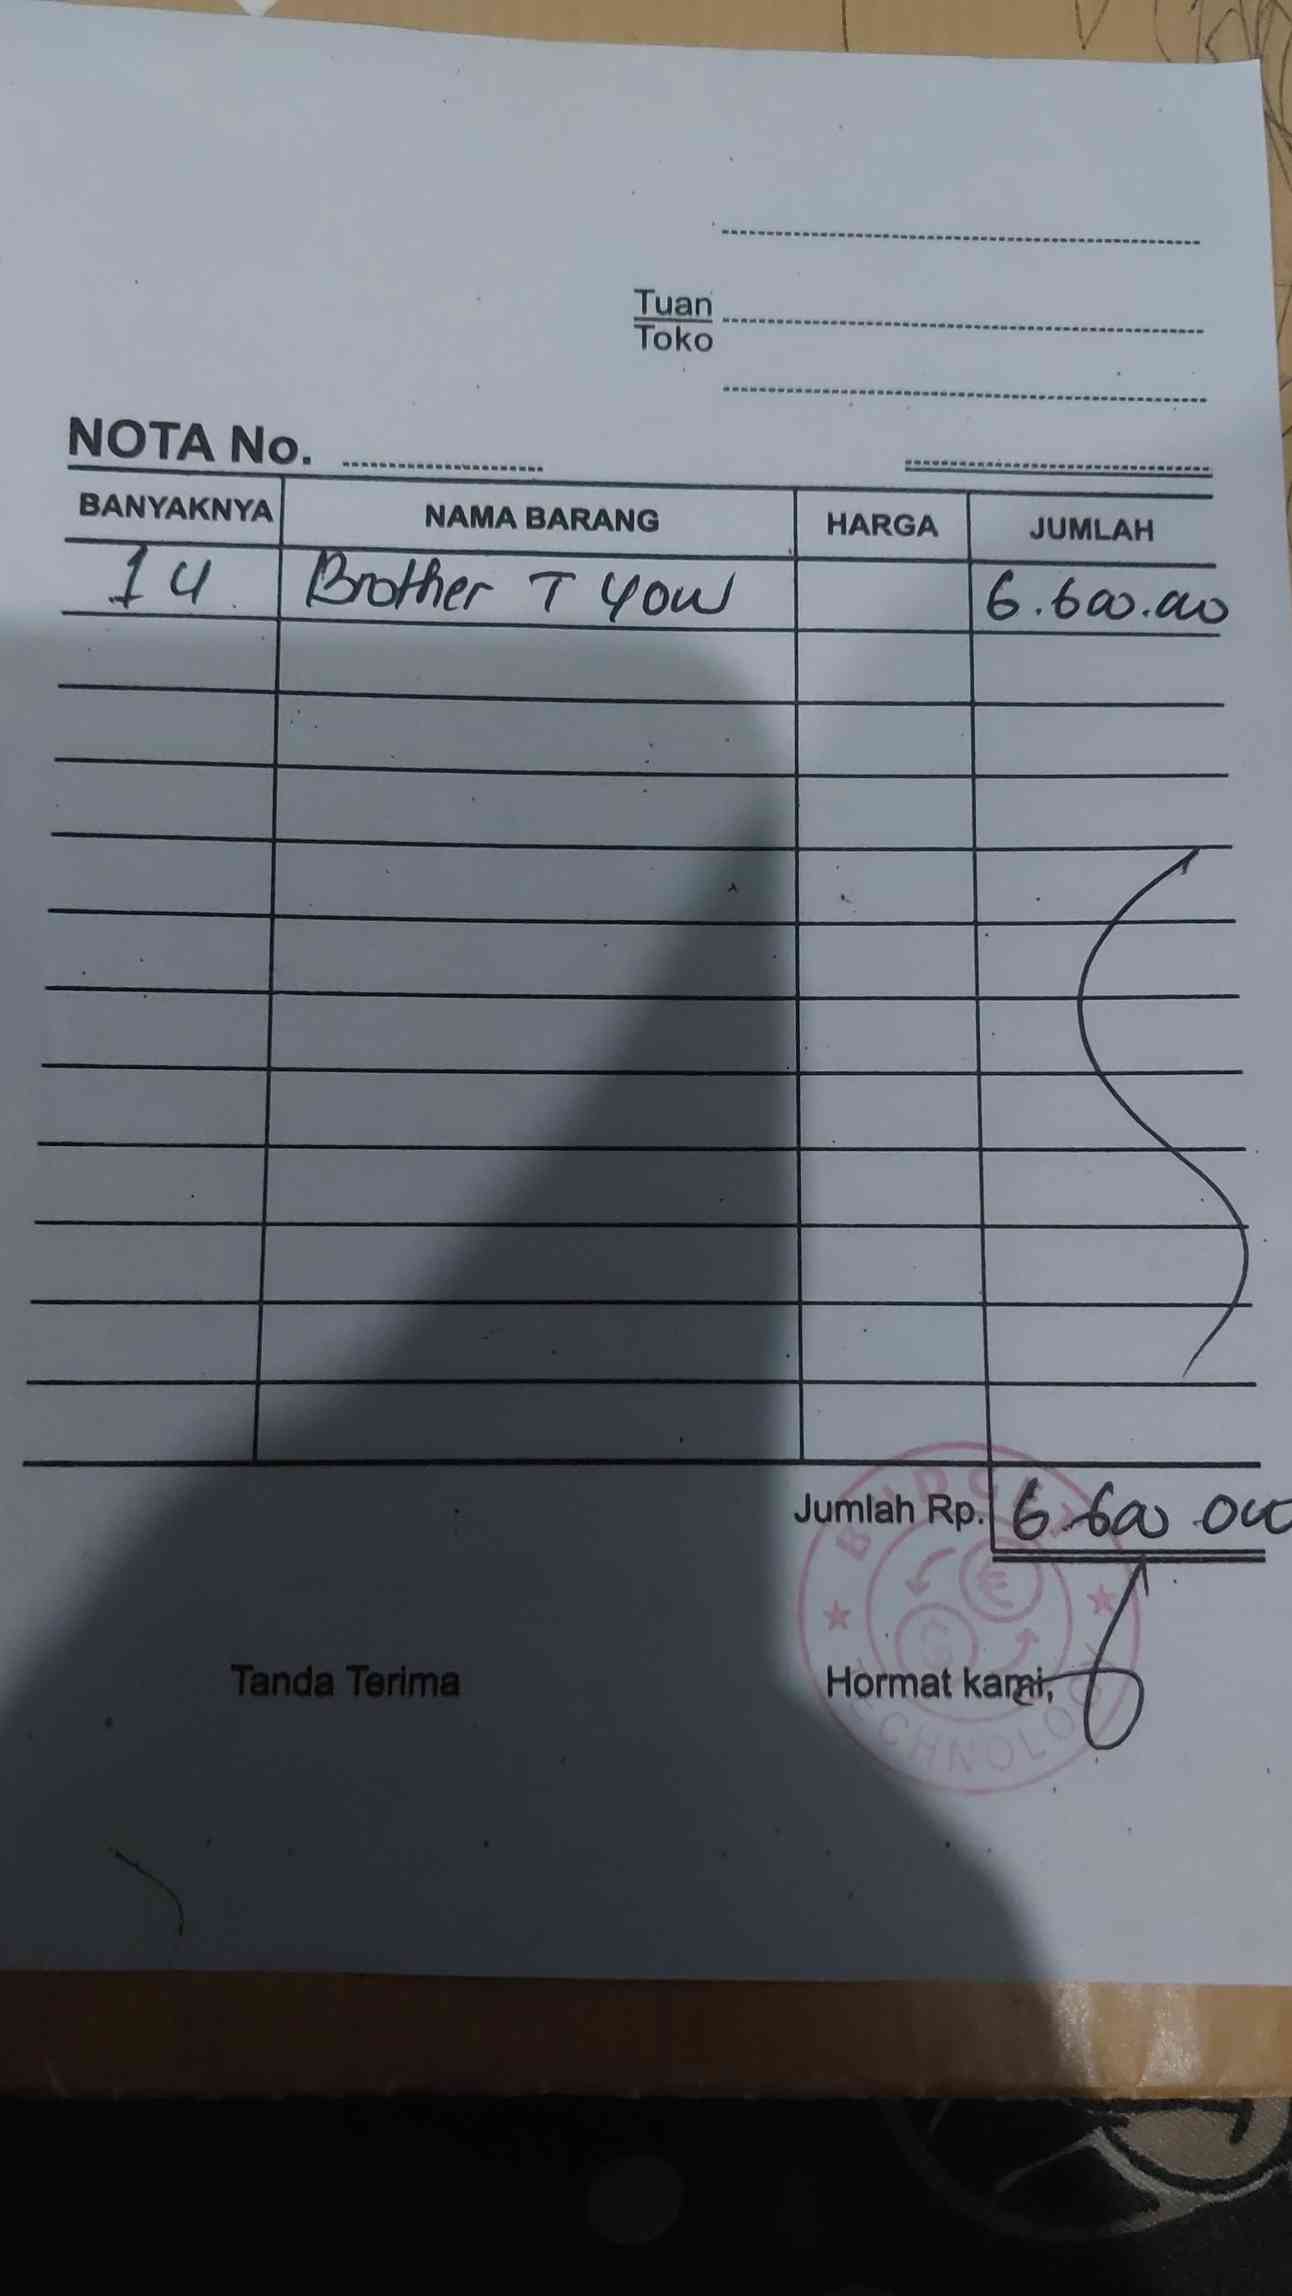 Tuan
Toko
NOTA No.
BANYAKNYA NAMA BARANG HARGA JUMLAH
1 U Brother T 40W 6.600.000
Jumlah Rp. 6.600.000
Tanda Terima Hormat kami,
BUDGET
TECHNOLOGY